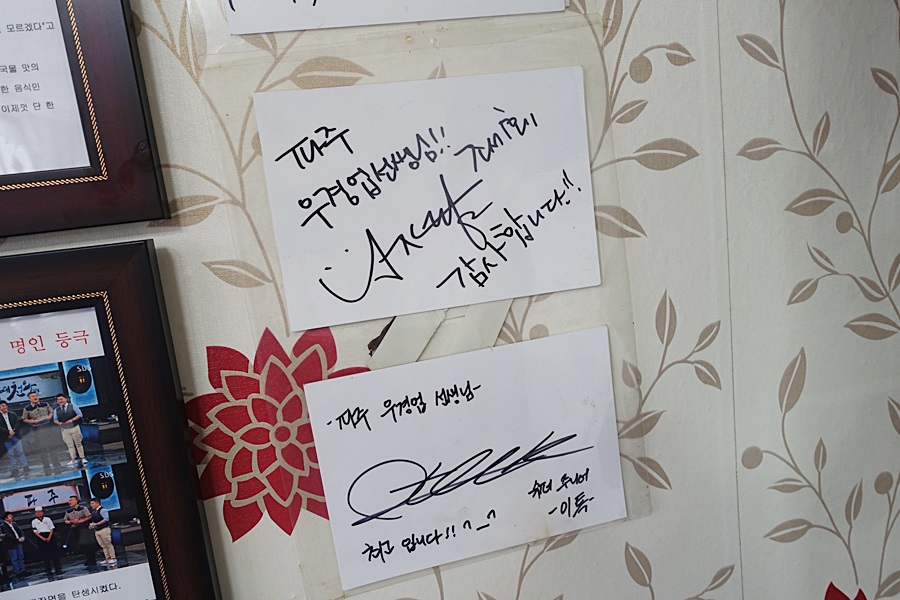 모르겠다"고
국물 맛의
한 음식인
이제껏 단 한
파주
우경업선생님!!
감사합니다!!
명인 등극
Sbs
파주
Sbs
짜장면을 탄생시켰다.
-파주 우경업 선생님-
슈퍼 주니어
-이특-
최고 입니다!! ^_^